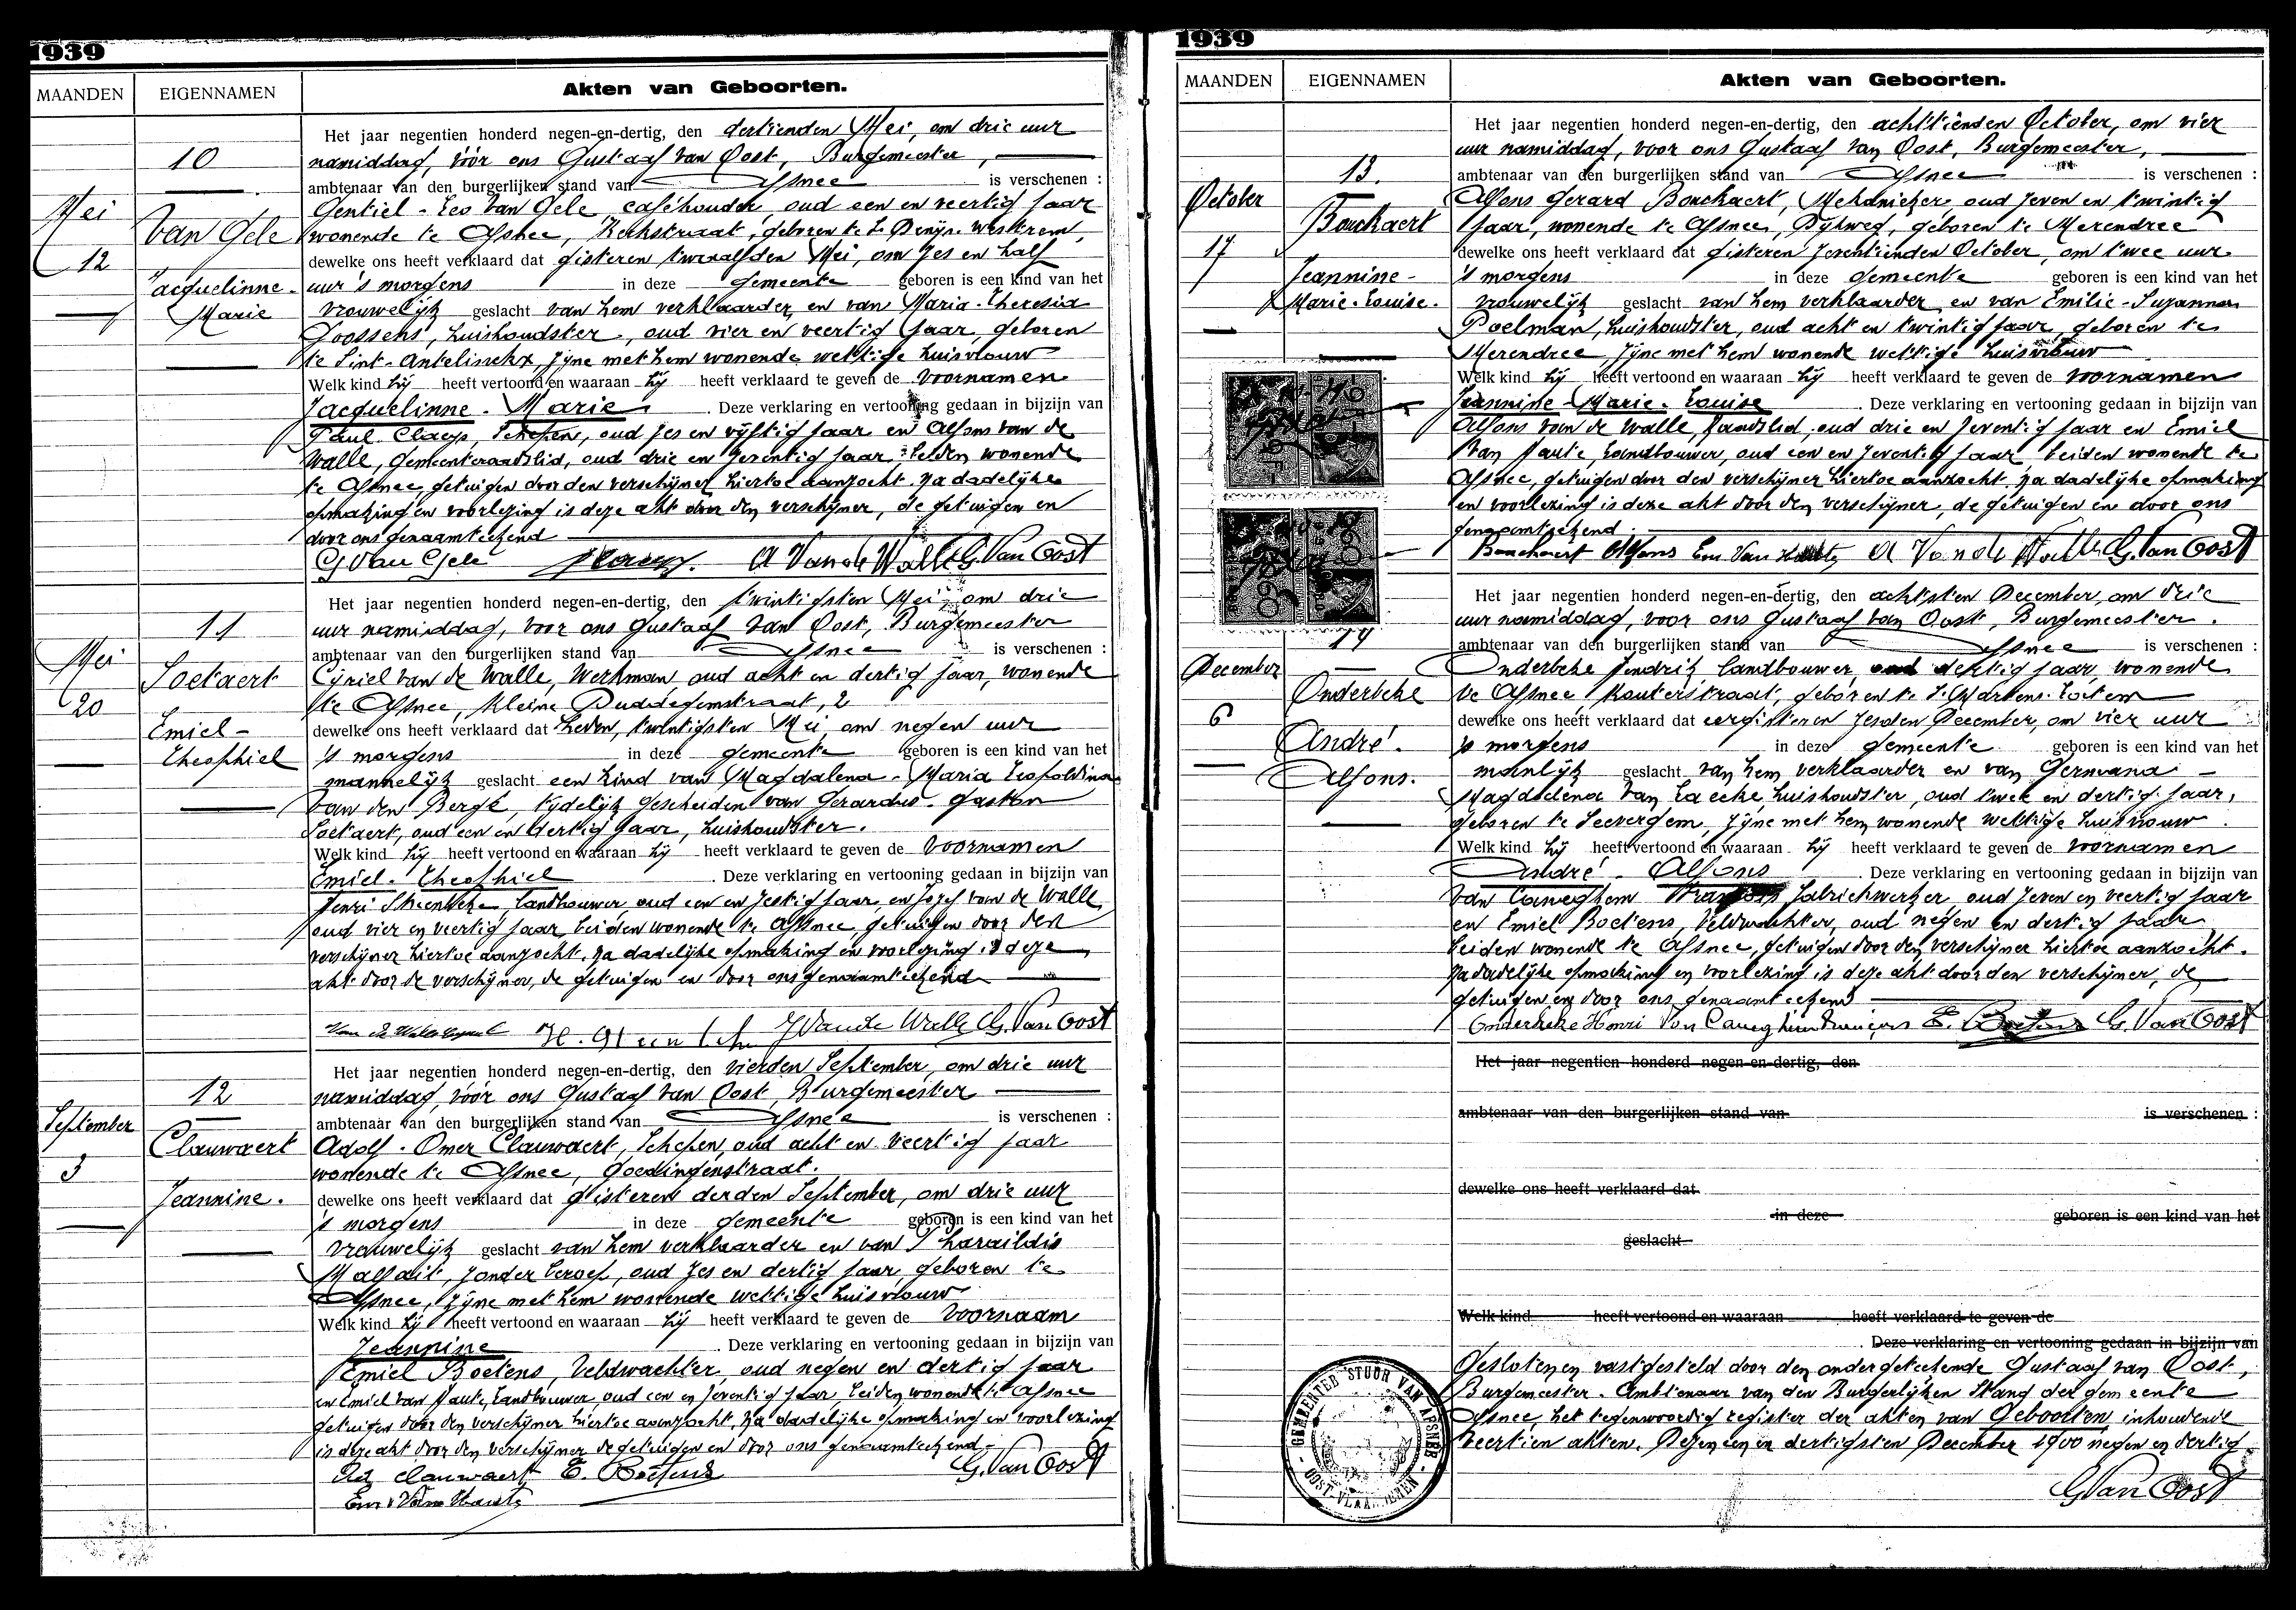 1939
MAANDEN EIGENNAMEN Akten van Geboorten.
Het jaar negentien honderd negen-en-dertig, den dertienden Mei, om drie uur
10 namiddag, vóór ons Gustaaf Van Oost, Burgemeester,
ambtenaar van den burgerlijken stand van Afsnee is verschenen :
Mei Gentiel - Leo Van Gele caféhouder, oud een en veertig jaar
Van Gele wonende te Afsnee, Kerkstraat, geboren te St Denijs-Westrem,
12 dewelke ons heeft verklaard dat gisteren twaalfden Mei, om zes en half
Jacquelinne - uur 's morgens in deze gemeente geboren is een kind van het
Marie vrouwelijk geslacht van hem verklaarder en van Maria-Theresia
Goossens, huishoudster, oud vier en veertig jaar, geboren
te Sint-Antelinckx, zijne met hem wonende wettige huisvrouw
Welk kind hij heeft vertoond en waaraan hij heeft verklaard te geven de voornamen
Jacquelinne - Marie. Deze verklaring en vertooning gedaan in bijzijn van
Paul Claeys, Schepen, oud zes en vijftig jaar en Alfons van de
Walle, Gemeenteraadslid, oud drie en zeventig jaar beiden wonende
te Afsnee getuigen door den verschijner hiertoe aanzocht. Na dadelijke
opmaking en voorlezing is deze akt door den verschijner, de getuigen en
door ons genaamteekend
G Van Gele A Van de Walle G. Van Oost
Het jaar negentien honderd negen-en-dertig, den twintigsten Mei, om drie
11 uur namiddag, voor ons Gustaaf Van Oost, Burgemeester
Mei ambtenaar van den burgerlijken stand van Afsnee is verschenen :
Soetaert Cyriel Van de Walle, Werkman, oud acht en dertig jaar, wonende
20 te Afsnee, Kleine Duddegemstraat, 2
Emiel - dewelke ons heeft verklaard dat heden, twintigsten Mei, om negen uur
Theophiel 's morgens in deze gemeente geboren is een kind van het
mannelijk geslacht een kind van Magdalena - Maria Leopoldina
Van den Berge, tijdelijk gescheiden van Gerardus - Gaston
Soetaert, oud een en dertig jaar, huishoudster.
Welk kind hij heeft vertoond en waaraan hij heeft verklaard te geven de voornamen
Emiel - Theophiel. Deze verklaring en vertooning gedaan in bijzijn van
Henri landbouwer, oud een en zestig jaar, en Jozef van de Walle,
oud vier en veertig jaar, beiden wonende te Afsnee, getuigen door den
verschijner hiertoe aanzocht. Na dadelijke opmaking en voorlezing is deze
akt door de verschijner, de getuigen en door ons genaamteekend
J Van de Walle G. Van Oost
Het jaar negentien honderd negen-en-dertig, den vierden September, om drie uur
12 namiddag, vóór ons Gustaaf Van Oost, Burgemeester
September ambtenaar van den burgerlijken stand van Afsnee is verschenen :
Clauwaert Adolf - Omer Clauwaert, Schepen, oud acht en veertig jaar
3 wonende te Afsnee, Goedingenstraat.
Jeannine. dewelke ons heeft verklaard dat gisteren derden September, om drie uur
's morgens in deze gemeente geboren is een kind van het
vrouwelijk geslacht van hem verklaarder en van Pharaildis
Malfait, zonder beroep, oud zes en dertig jaar, geboren te
Afsnee, zijne met hem wonende wettige huisvrouw
Welk kind hij heeft vertoond en waaraan hij heeft verklaard te geven de voornaam
Jeannine. Deze verklaring en vertooning gedaan in bijzijn van
Emiel Boetens, Veldwachter, oud negen en dertig jaar
en Emiel Van Haute, Landbouwer, oud een en zeventig jaar, beiden wonende te Afsnee
getuigen door den verschijner hiertoe aanzocht. Na dadelijke opmaking en voorlezing
is deze akt door den verschijner de getuigen en door ons genaamteekend -
Ad Clauwaert E. Boetens G. Van Oost
Em Van Haute
1939
MAANDEN EIGENNAMEN Akten van Geboorten.
Het jaar negentien honderd negen-en-dertig, den achttienden October, om vier
uur namiddag, voor ons Gustaaf Van Oost, Burgemeester,
13. ambtenaar van den burgerlijken stand van Afsnee is verschenen :
October Alfons Gerard Bouchaert, Mekanieker, oud zeven en twintig
Bouchaert jaar, wonende te Afsnee, Dijkweg, geboren te Merendree
17 dewelke ons heeft verklaard dat gisteren zeventienden October, om twee uur
Jeannine - 's morgens in deze gemeente geboren is een kind van het
Marie-Louise. vrouwelijk geslacht van hem verklaarder en van Emilie-Suzanna
Poelman, huishoudster, oud acht en twintig jaar, geboren te
Merendree zijne met hem wonende wettige huisvrouw
Welk kind hij heeft vertoond en waaraan hij heeft verklaard te geven de voornamen
Jeannine - Marie - Louise. Deze verklaring en vertooning gedaan in bijzijn van
Alfons van de Walle, Raadslid, oud drie en zeventig jaar en Emiel
Van Haute, Landbouwer, oud een en zeventig jaar beiden wonende te
Afsnee, getuigen door den verschijner hiertoe aanzocht. Na dadelijke opmaking
en voorlezing is deze akt door den verschijner, de getuigen en door ons
genaamteekend.
Bouchaert Alfons Em Van Haute A Van de Walle G. Van Oost
Het jaar negentien honderd negen-en-dertig, den achtsten December, om drie
uur namiddag, voor ons Gustaaf Van Oost, Burgemeester.
14 ambtenaar van den burgerlijken stand van Afsnee is verschenen :
December Onderbeke Hendrik, landbouwer, oud dertig jaar, wonende
Onderbeke te Afsnee, Kouterstraat, geboren te St Martens-Leerne
6 dewelke ons heeft verklaard dat eergisteren zesden December, om vier uur
André. 's morgens in deze gemeente geboren is een kind van het
Alfons. manlijk geslacht van hem verklaarder en van Germana -
Magdalena Van Laecke, huishoudster, oud twee en dertig jaar,
geboren te Seevergem, zijne met hem wonende wettige huisvrouw.
Welk kind hij heeft vertoond en waaraan hij heeft verklaard te geven de voornamen
André - Alfons. Deze verklaring en vertooning gedaan in bijzijn van
Van Caneghem François fabriekwerker, oud zeven en veertig jaar
en Emiel Boetens, Veldwachter, oud negen en dertig jaar
beiden wonende te Afsnee, getuigen door den verschijner hiertoe aanzocht.
Na dadelijke opmaking en voorlezing is deze akt door den verschijner, de
getuigen en door ons genaamteekend
Onderbeke Henri Van Caneghem François E. Boetens G. Van Oost
Het jaar negentien honderd negen-en-dertig, den
ambtenaar van den burgerlijken stand van is verschenen :
dewelke ons heeft verklaard dat
in deze geboren is een kind van het
geslacht
Welk kind heeft vertoond en waaraan heeft verklaard te geven de
. Deze verklaring en vertooning gedaan in bijzijn van
Gesloten en vastgesteld door den ondergeteekende Gustaaf van Oost,
Burgemeester - Ambtenaar van den Burgerlijken Stand der gemeente
Afsnee het tegenwoordig register der akten van Geboorten inhoudende
veertien akten. Dezen een en dertigsten December 1900 negen en dertig
G Van Oost
GEMEENTEBESTUUR VAN AFSNEE
OOST-VLAANDEREN